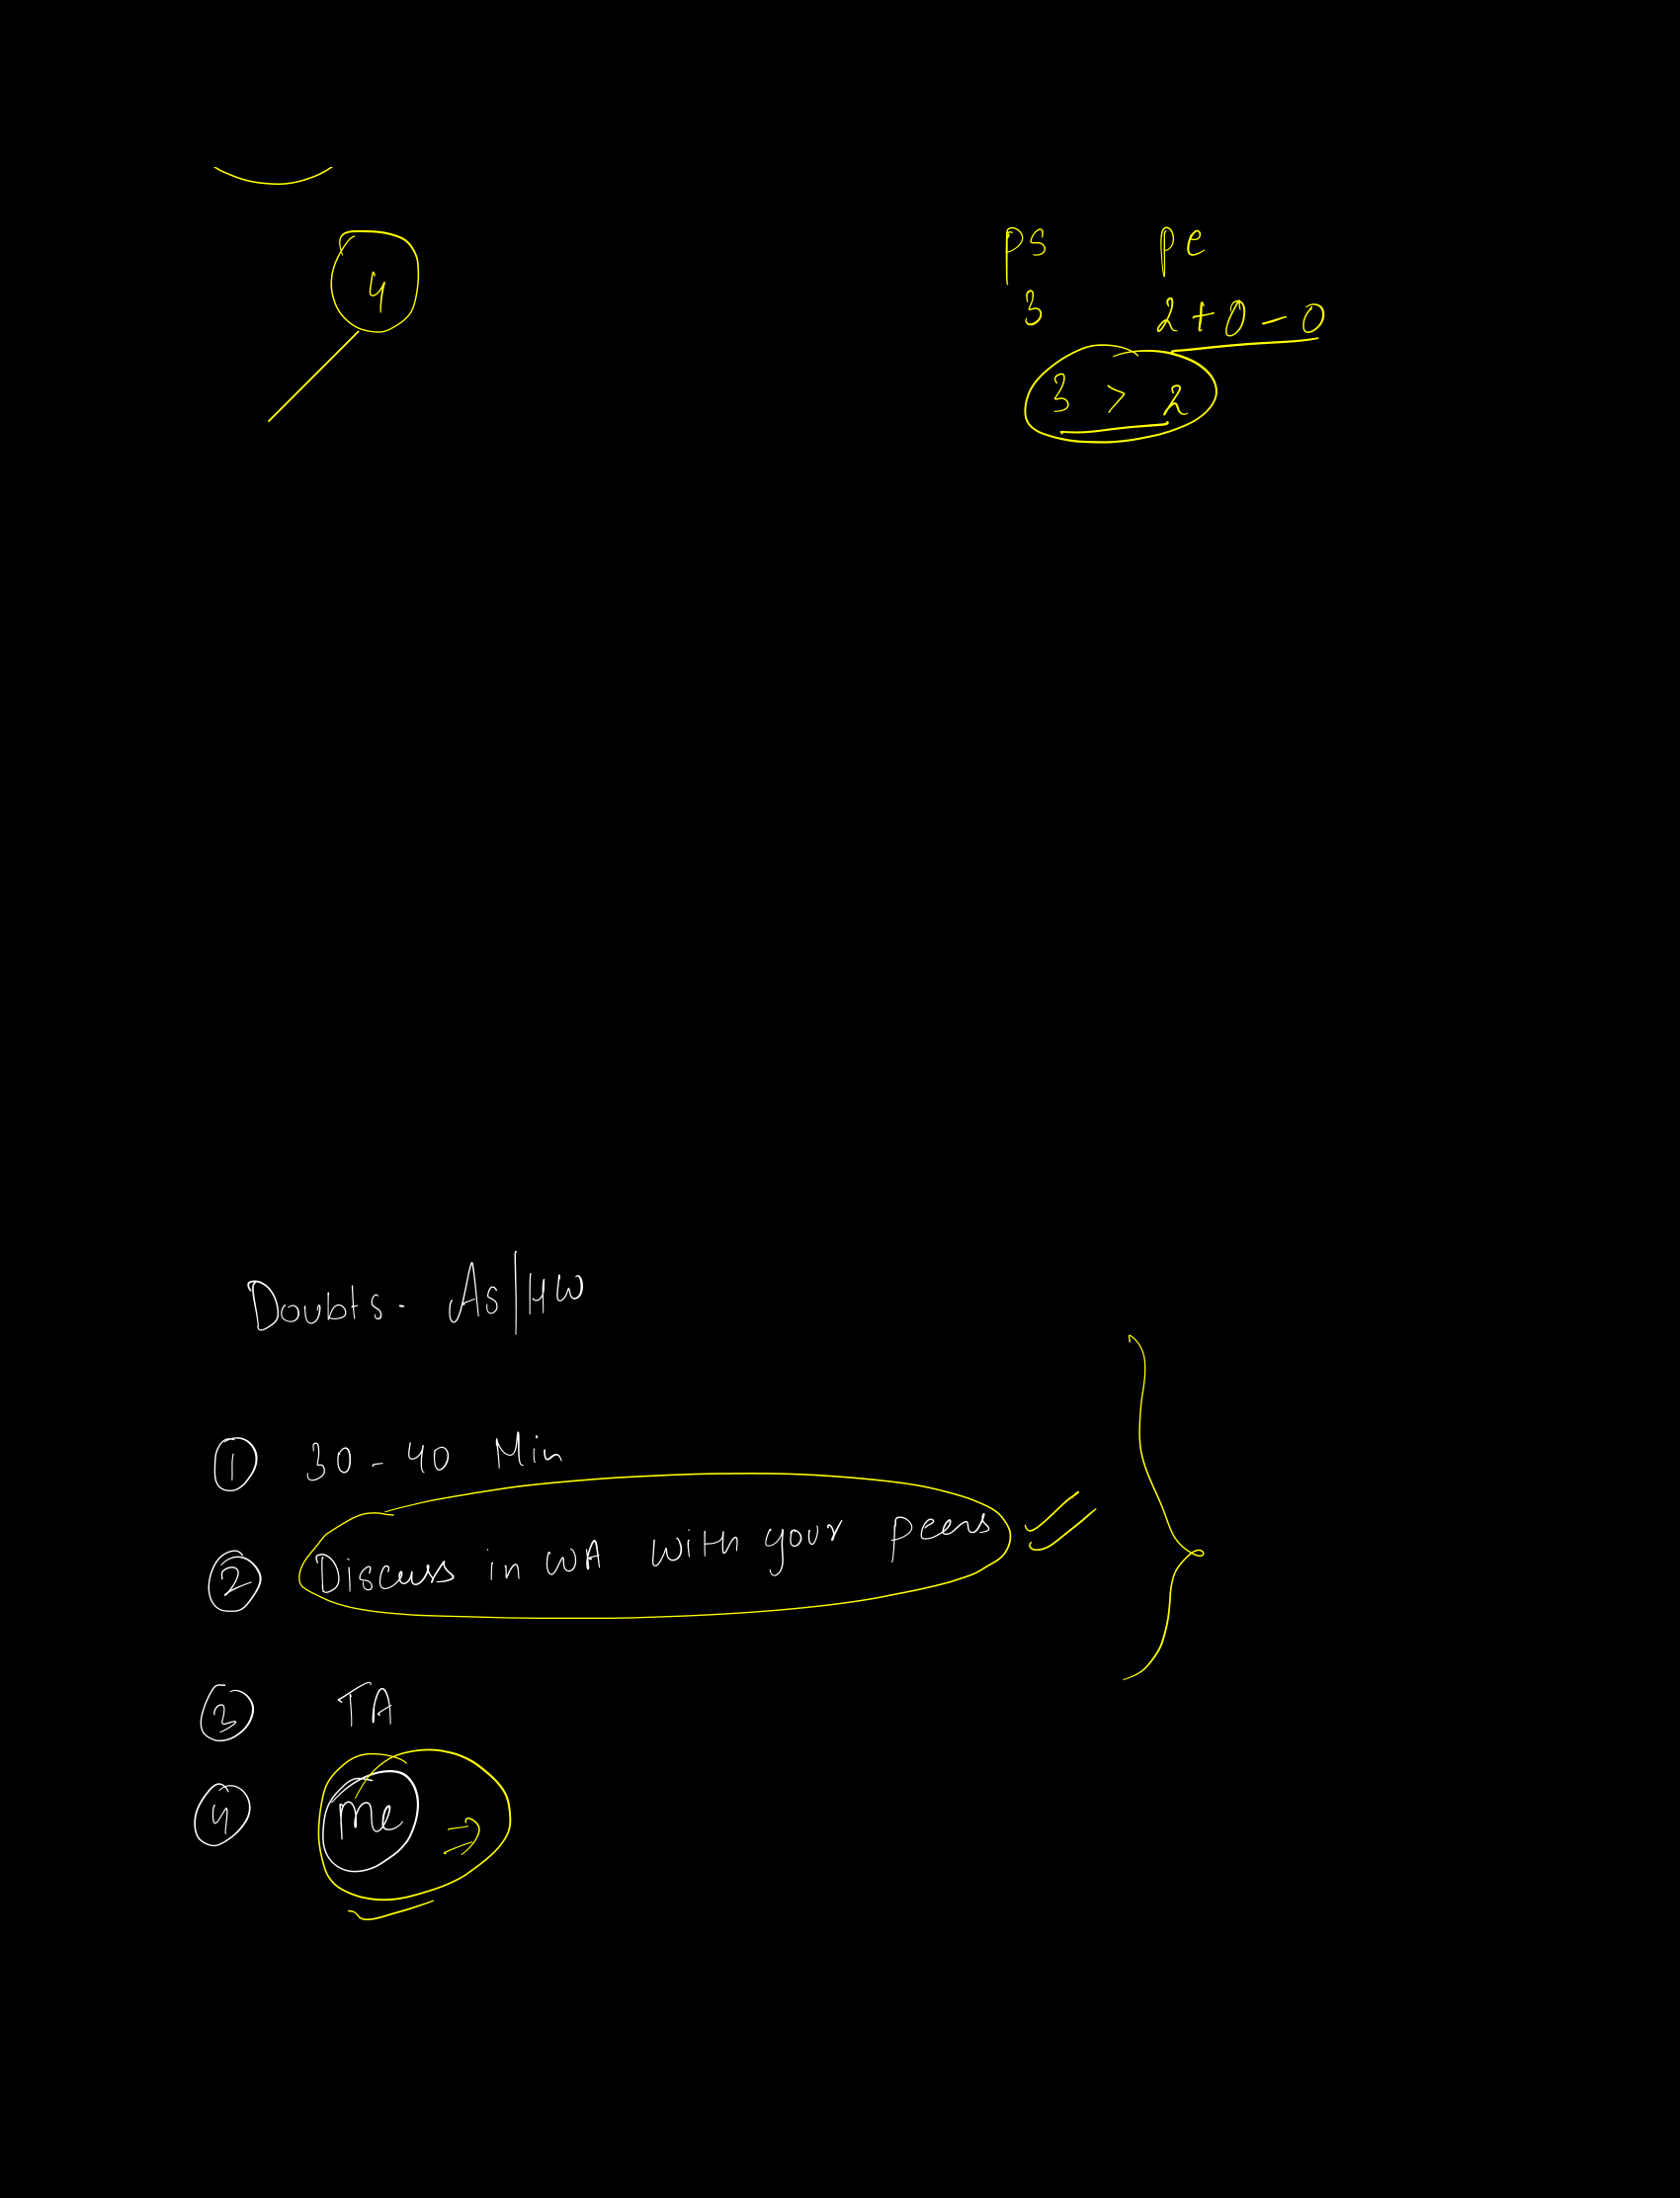 ps pe
4
3 2+0-0
3 > 2
Doubts. As/HW
① 30-40 Min
② Discuss in WA with your peers
③ TA
④ me ⇒